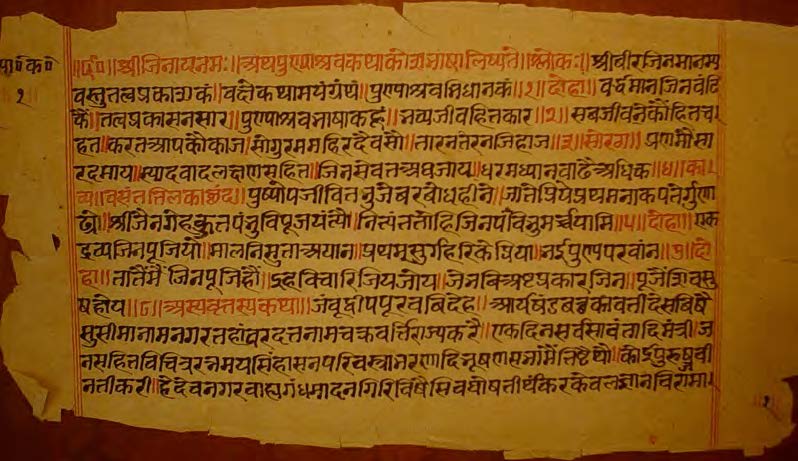 ॥६०॥श्रीजिनायनमः॥अथपुण्याश्रवकथाकोशभाषालिष्यते॥श्लोकः॥श्रीवीरजिनमानम्य
वस्तुतत्वप्रकाशकं॥वक्षेकथामयंग्रंथं॥पुण्याश्रवभिधानकं॥१॥दोहा॥वर्द्धमानजिनवंदि
कैं॥तत्वप्रकासनसार॥पुण्याश्रवभाषाकहूं॥भव्यजीवहितकार॥२॥सबजीवनकौंहितच
हत॥करतआपकौकाज॥सोगुरममहिरदैवसौ॥तारनतरनजिहाज॥३॥सोरठा॥प्रणमौंसा
रदमाय॥स्यादवादलक्षणसहित॥जिनसेवतअघजाय॥धरमध्यानवाढैअधिक॥४॥का
व्य॥वसंततिलकाछंद॥पुष्पोपजीवितनुजेवरबोधहीने॥जातेप्रियेप्रथमनाकपतेर्गुण
श्रीजैनगेह
नित्यंततोहिजिनपंविभुमर्च्चयामि॥५॥दोहा॥एक
द्रव्यजिनपूजियौ॥मालनिसुताअयान॥प्रथमसुर्गहरिकेप्रिया॥नईपुण्यपरवांन॥६॥दो
हा॥तातैंमैंजिनपूजिहौं
जिनपूजैंशिवसु
षहोय॥७॥अस्यवृत्तस्यकथा॥जंबूद्वीपपूरवविदेह॥आर्यषंड
देसविषै
सुसीमानामनगरतहांवरदत्तनामचक्रवर्त्तिराज्यकरै॥एकदिनसर्वसावंतादिमंत्री
नसहितविचित्ररत्नमयसिंहासनपरिवस्त्राभरणादिभूषण
नतीकरी॥हेदेवनगरवाह्यगंधमादनगिरिविषैसिवघोषतीर्थंकरकेवलज्ञानविराजमा